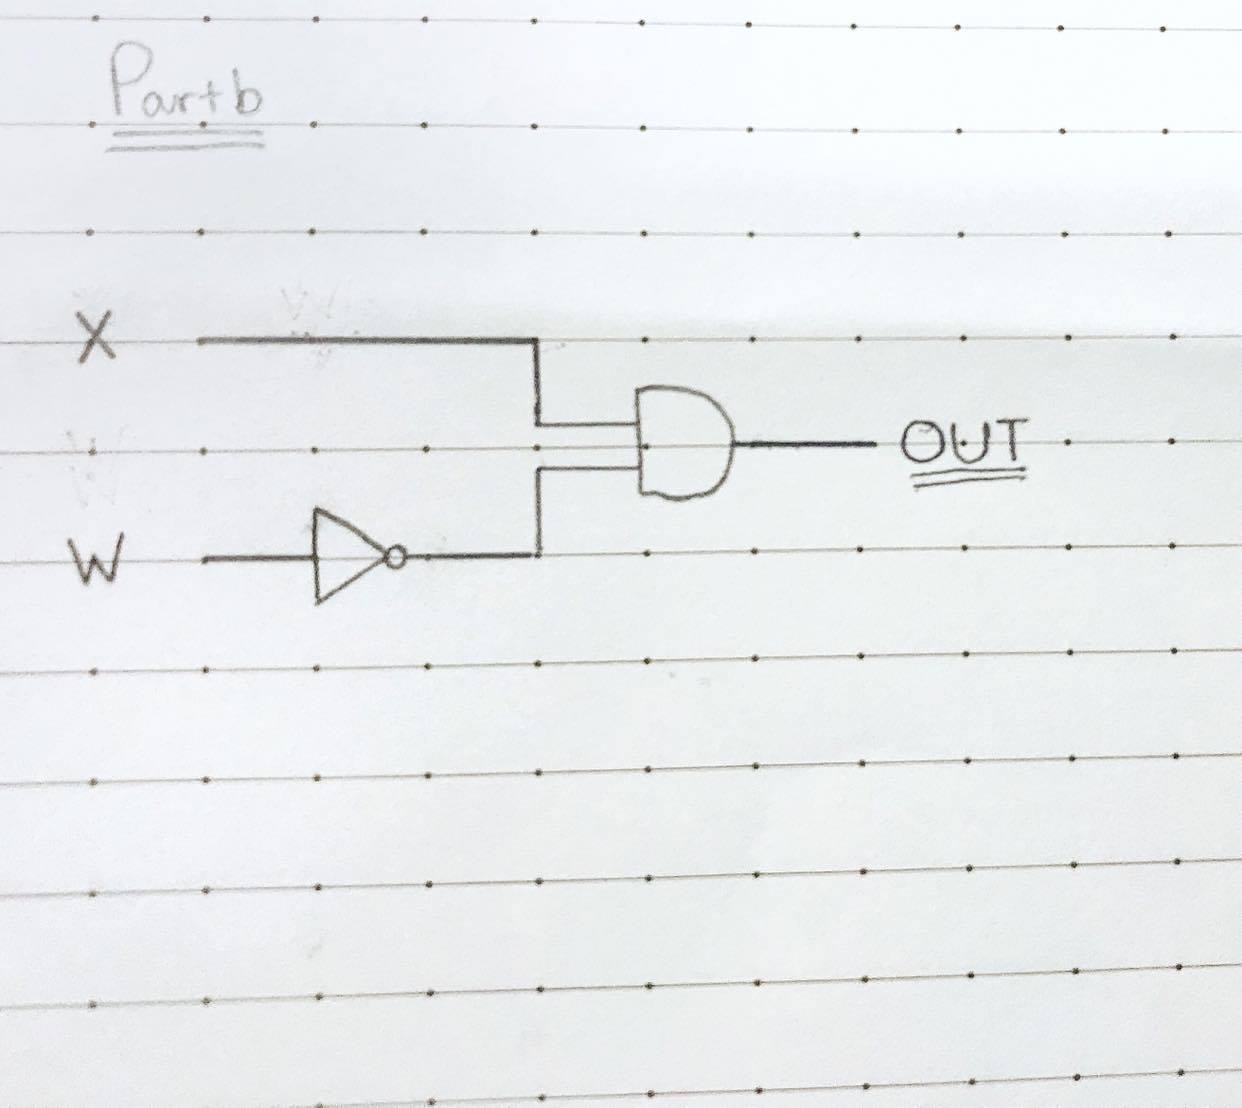 Part b
X
OUT
W